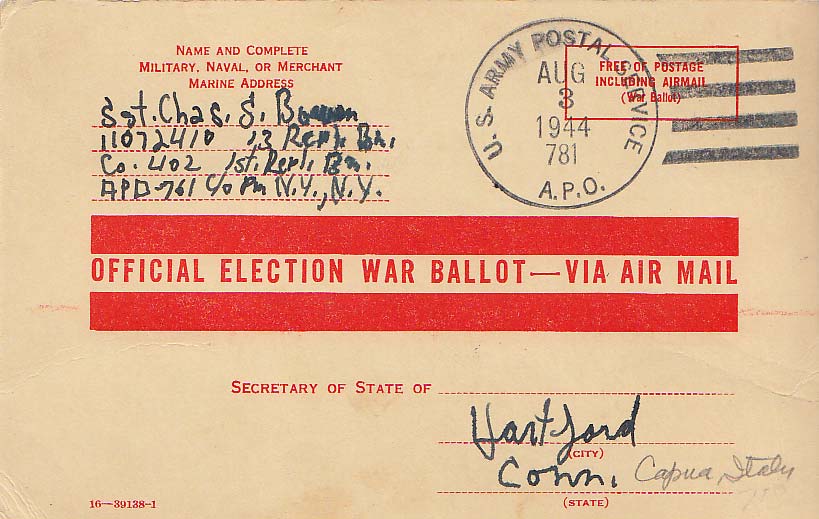 NAME AND COMPLETE
MILITARY, NAVAL, OR MERCHANT
MARINE ADDRESS
Sgt. Chas. S.
11072410 13 Repl. Bn.
Co. 402 1st. Repl. Bn.
APO-761 c/o PM N.Y., N.Y.
U.S. ARMY POSTAL SERVICE
AUG
3
1944
781
A.P.O.
FREE OF POSTAGE
INCLUDING AIRMAIL
(War Ballot)
OFFICIAL ELECTION WAR BALLOT—VIA AIR MAIL
SECRETARY OF STATE OF
Hartford
(CITY)
Conn. Capua, Italy
(STATE)
16—39138-1